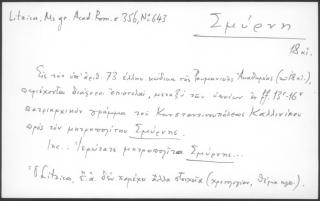 Litzica, Ms gr. Acad. Rom. σ 356, Nο 643
Σμύρνη
18 αἰ.
Εἰς τὸν ὑπ' ἀριθ. 73 ἑλλην. κώδικα τῆς Ρουμανικῆς Ἀκαδημίας (αι 18 αἰ.),
περιέχονται διάφοροι ἐπιστολαί, μεταξὺ τῶν ὁποίων ἐν ff. 13ʳ-16ᵛ
πατριαρχικὸν γράμμα τοῦ Κωνσταντινουπόλεως Καλλινίκου
πρὸς τὸν μητροπολίτην Σμύρνης.
Inc.: Ἱερώτατε μητροπολίτα Σμύρνης...
Ὁ Litzica, ἔ.ἀ. δὲν παρέχει ἄλλα στοιχεῖα (χρονολογίαν, θέμα κλπ.).